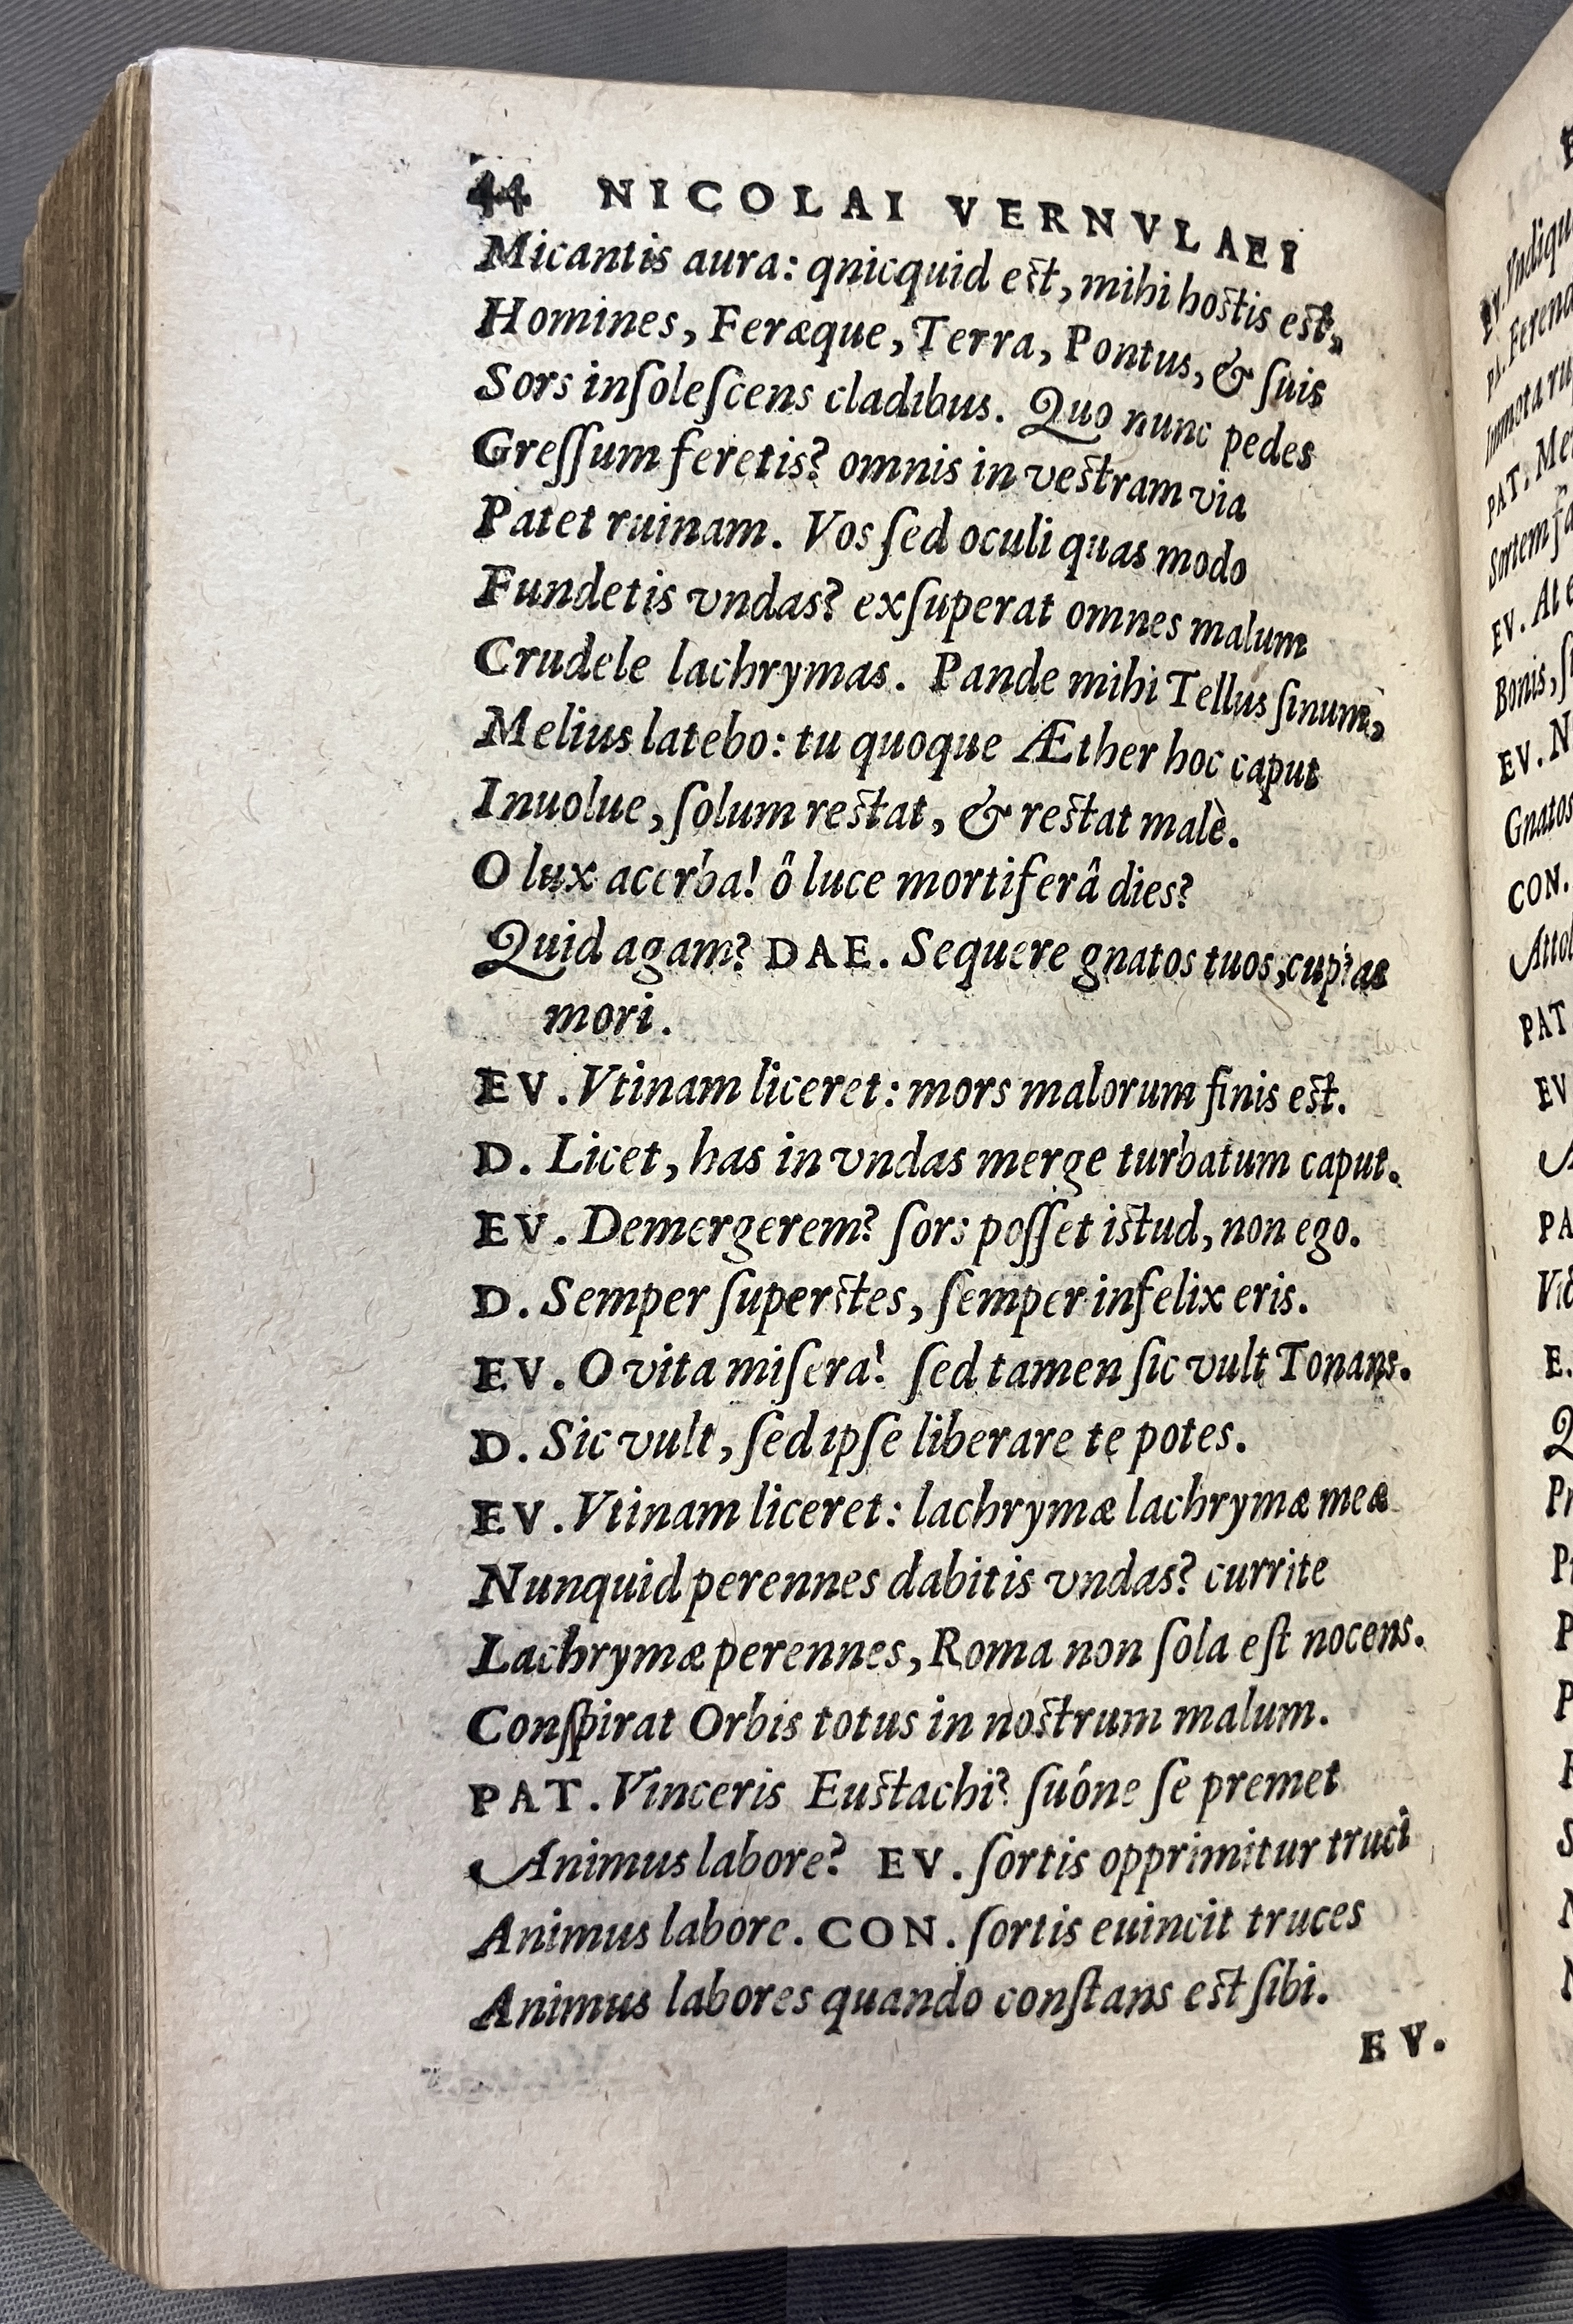 44 NICOLAI VERNVLAEI
Micantis aura: qnicquid eſt, mihi hoſtis eſt,
Homines, Feræque, Terra, Pontus, & ſuis
Sors inſoleſcens cladibus. Quo nunc pedes
Greſſum feretis? omnis in veſtram via
Patet ruinam. Vos ſed oculi quas modo
Fundetis vndas? exſuperat omnes malum
Crudele lachrymas. Pande mihi Tellus ſinum,
Melius latebo: tu quoque Æther hoc caput
Inuolue, ſolum reſtat, & reſtat malè.
O lux acerba! ô luce mortiferâ dies?
Quid agam? DAE. Sequere gnatos tuos, cupias
mori.
EV. Vtinam liceret: mors malorum finis eſt.
D. Licet, has in vndas merge turbatum caput.
EV. Demergerem? ſors poſſet iſtud, non ego.
D. Semper ſuperſtes, ſemper infelix eris.
EV. O vita miſera! ſed tamen ſic vult Tonans.
D. Sic vult, ſed ipſe liberare te potes.
EV. Vtinam liceret: lachrymæ lachrymæ meæ
Nunquid perennes dabitis vndas? currite
Lachrymæ perennes, Roma non ſola eſt nocens.
Conſpirat Orbis totus in noſtrum malum.
PAT. Vinceris Euſtachi? ſuóne ſe premet
Animus labore? EV. ſortis opprimitur truci
Animus labore. CON. ſortis euincit truces
Animus labores quando conſtans eſt ſibi.
EV.